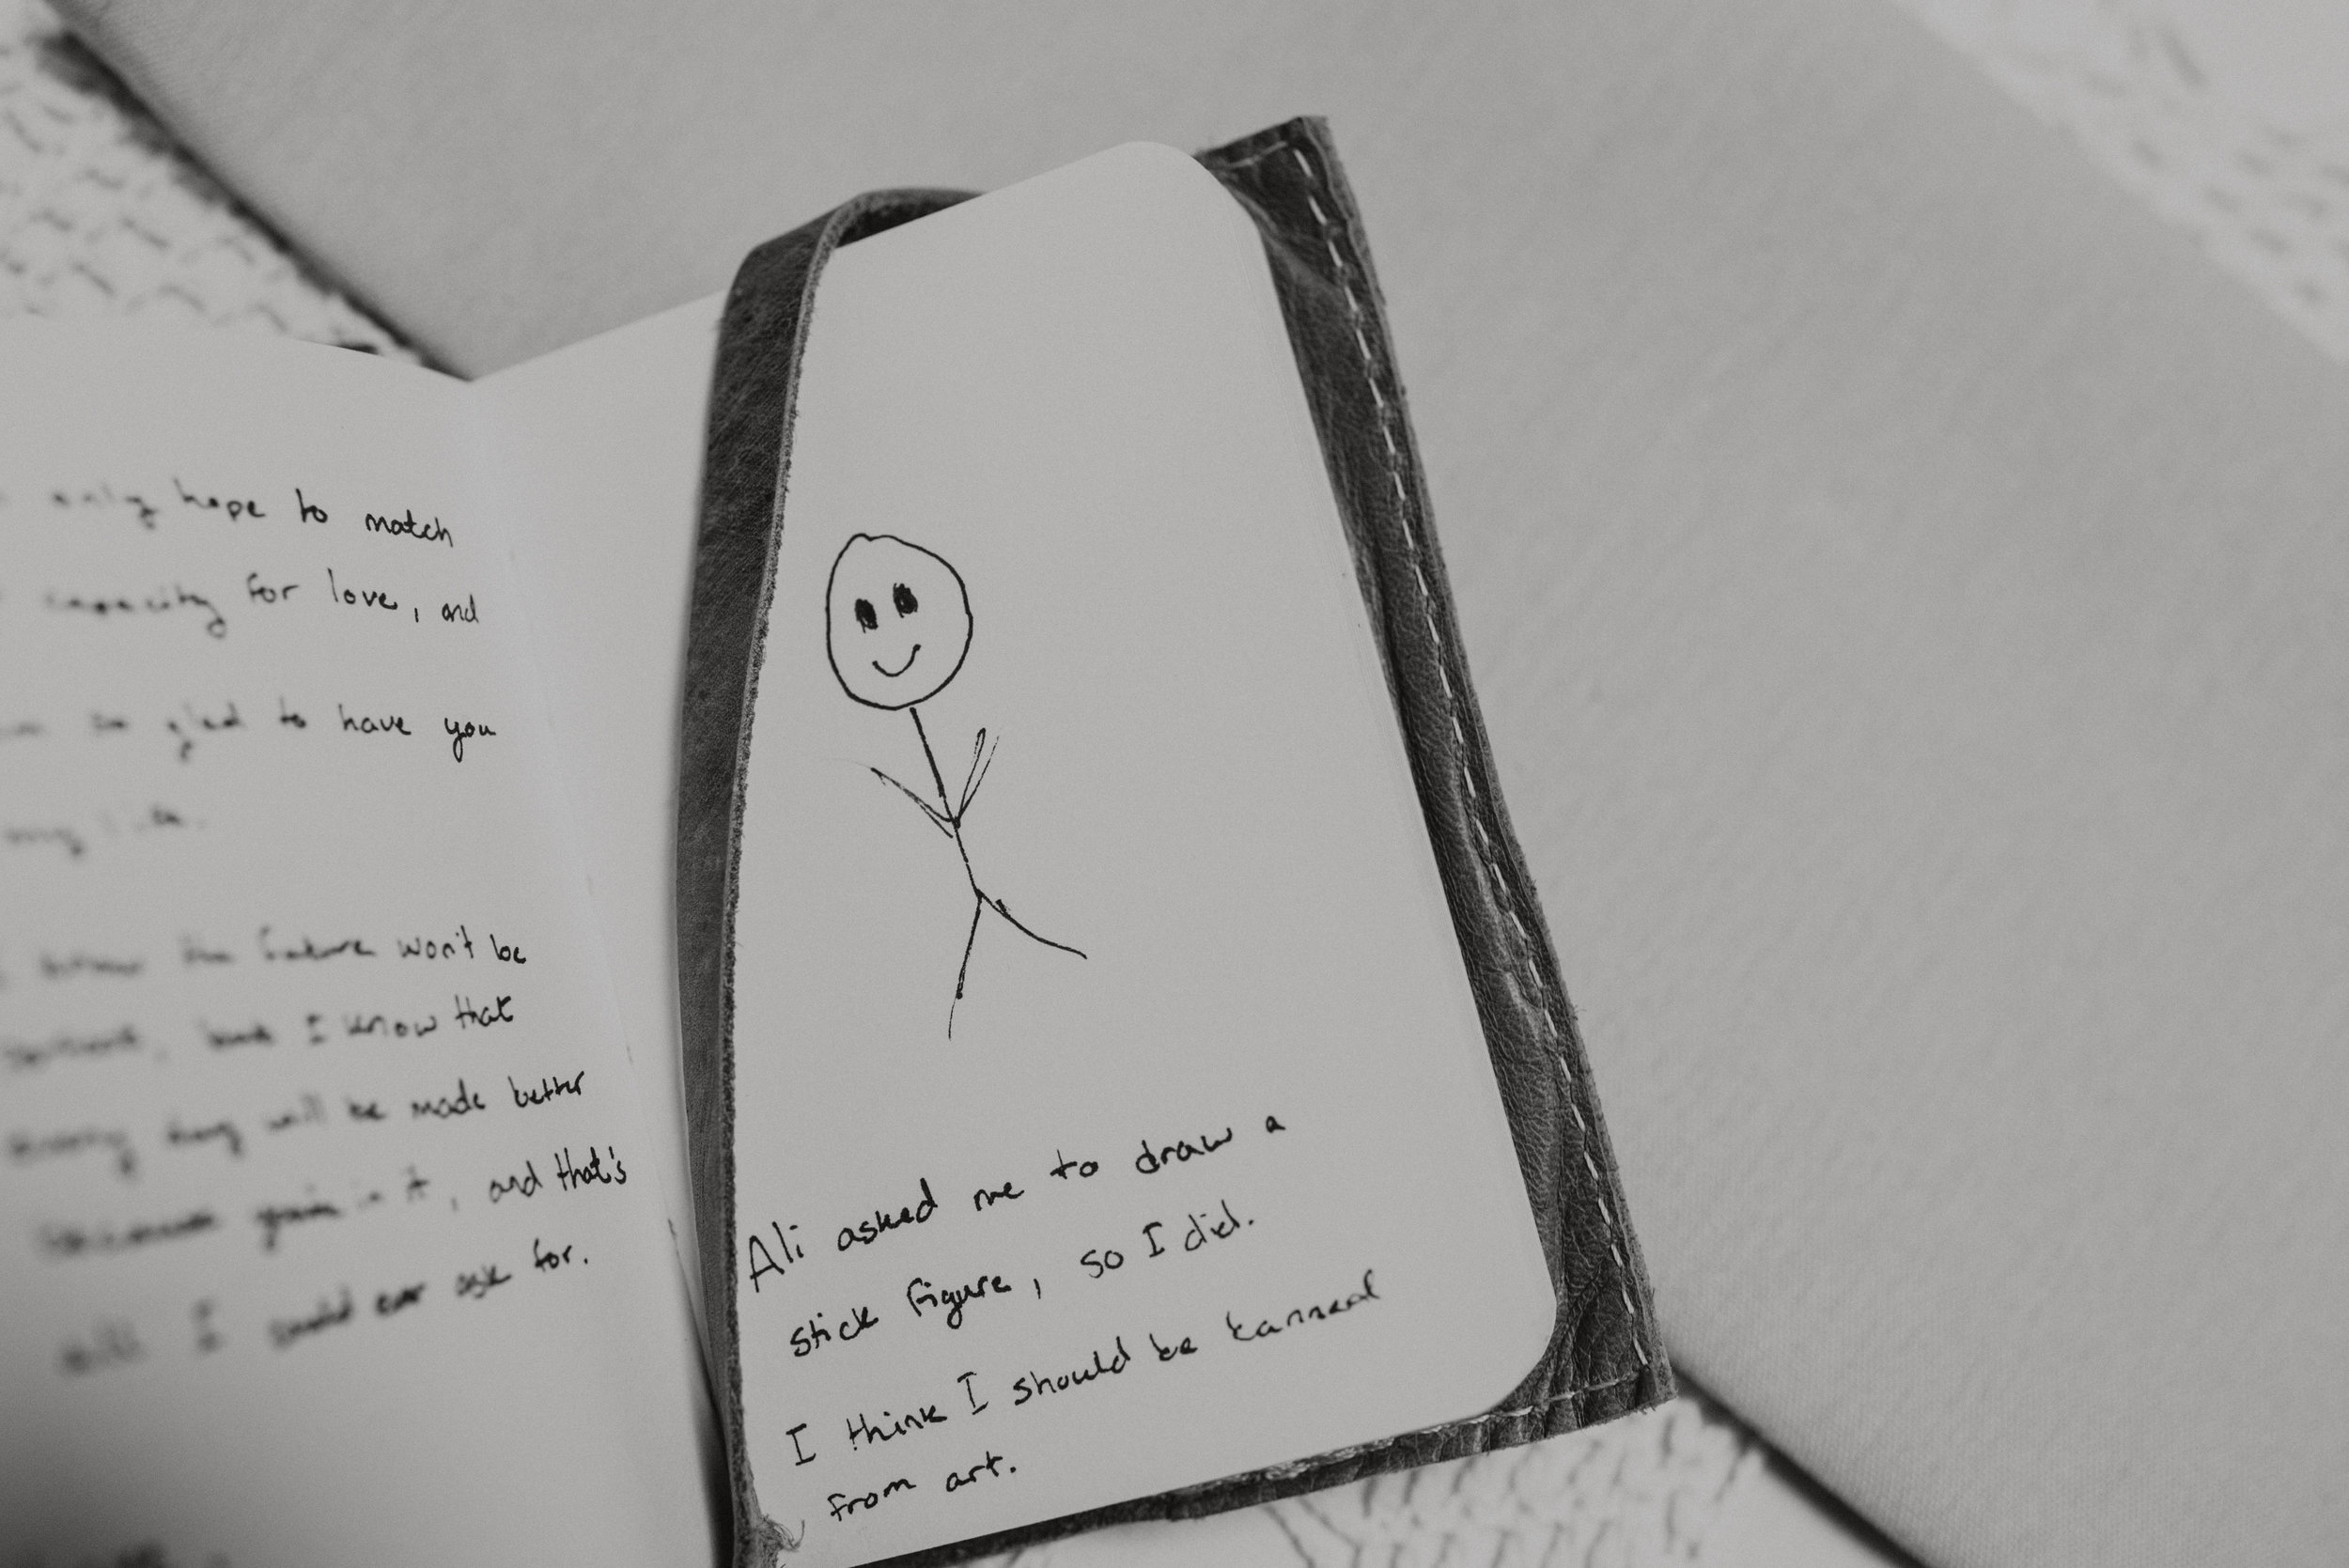 only hope to match
capacity for love, and
so glad to have you
my
the future won't be
but I know that
will be made better
in it, and that's
I could ever ask for.
Ali asked me to draw a
stick figure, so I did.
I think I should be banned
from art.